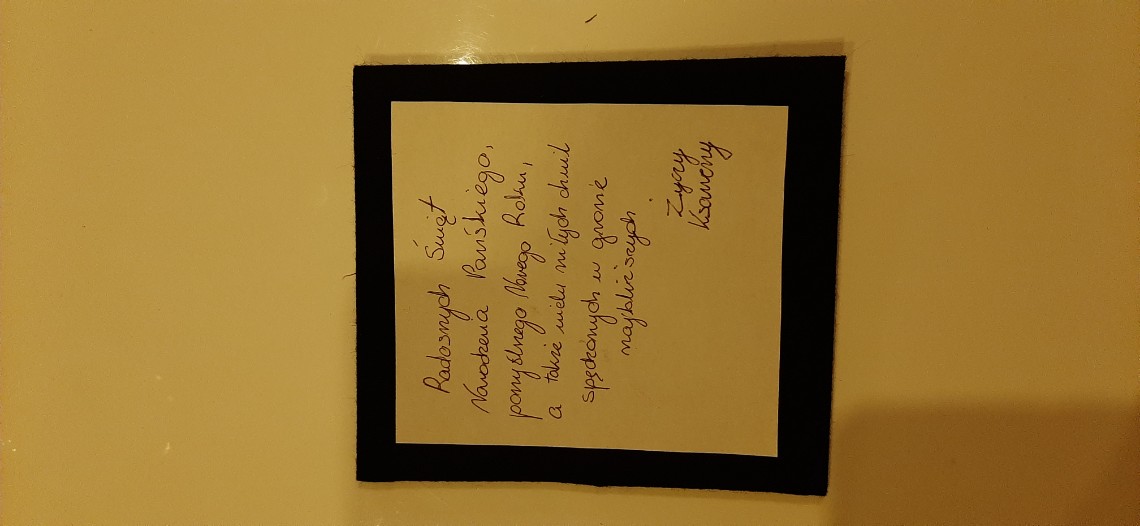 Radosnych Świąt
Narodzenia Pańskiego,
pomyślnego Nowego Roku,
a także wielu miłych chwil
spędzonych w gronie
najbliższych
Życzy
Ksawery